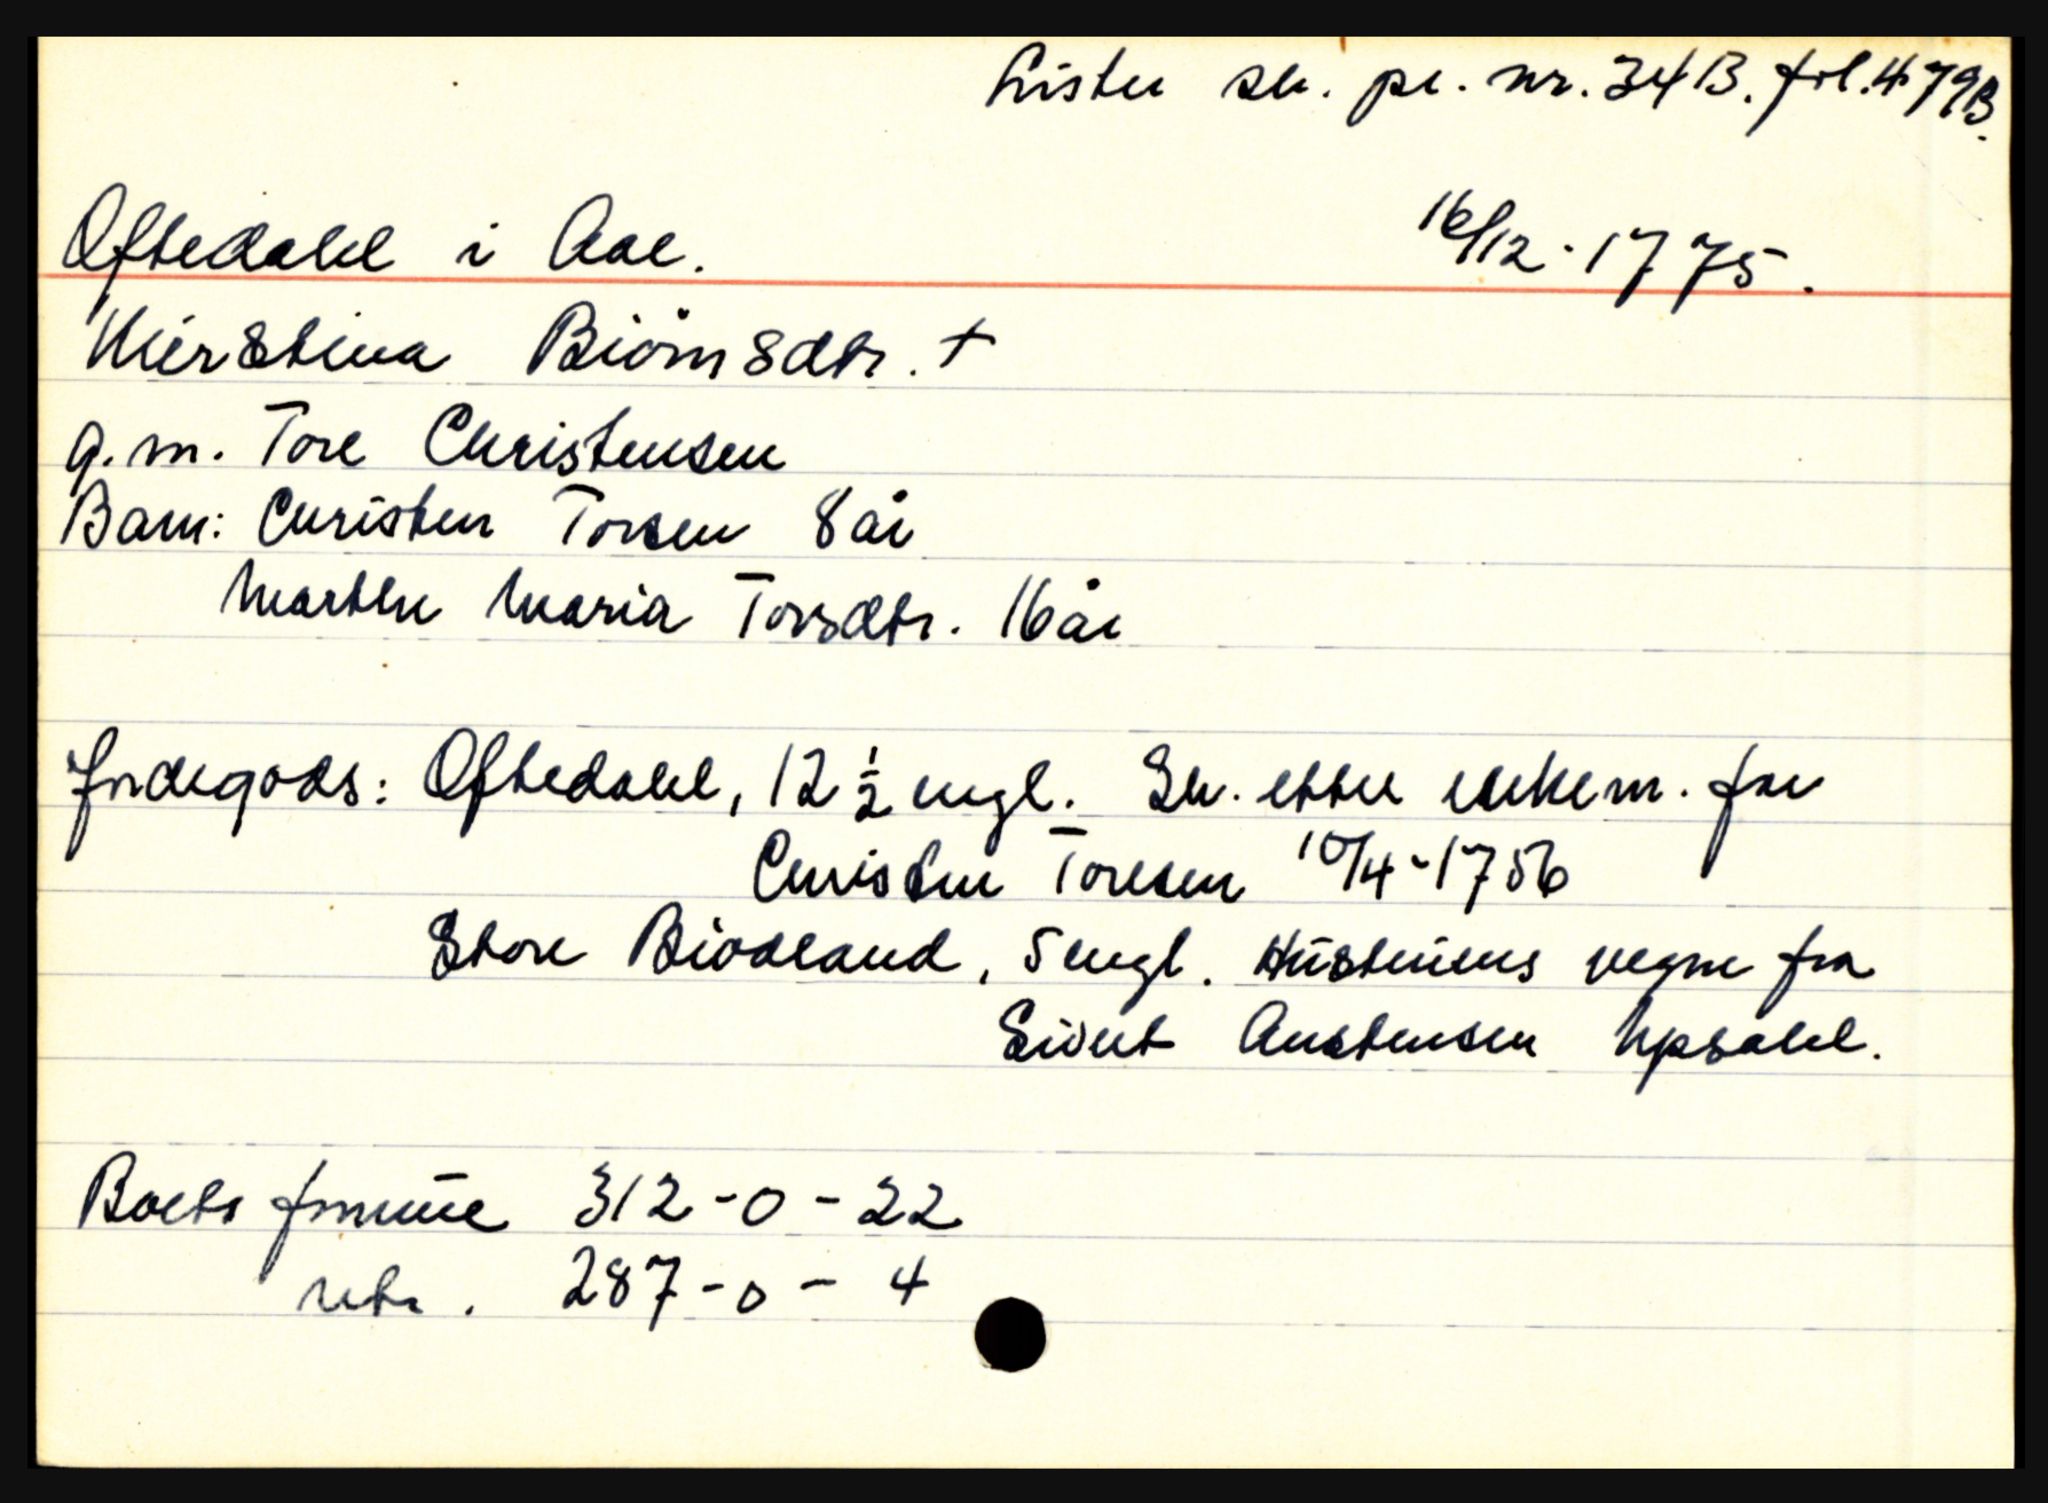 Lister sk. pr. nr. 34B. fol. 479B.
Oftedahl i Aae. 16/12-1775.
Kierstina Biörnsdtr. +
g.m. Tore Christensen
Barn: Christen Torsen 8 år
Marthe Maria Torsdtr. 16 år
Jordegods: Oftedahl, 12 1/2 engl. Sk. etter enkem. far
Christen Toresen 10/4-1756
Store Biodland, 5 engl. Hustruens vegne fra
Sivert Austensen Upsahl.
Boets formue 312-0-22
netr. 287-0-4